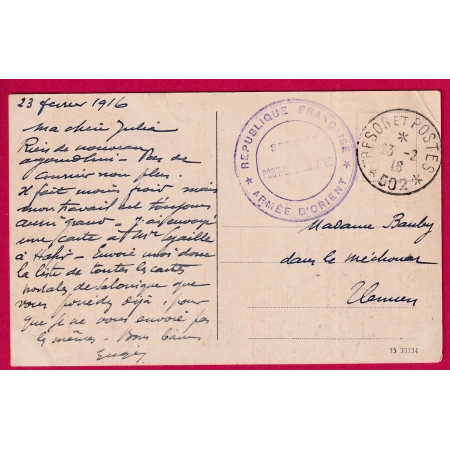 23 fevrier 1916
Ma chère Julia
Rien de nouveau
aujourd'hui - Pas de
courrier non plus.
Il fait moins froid mais
mon travail est toujours
aussi grand - J'ai envoyé
une carte à Mr
à - Envoie moi donc
la liste de toutes les cartes
postales de Salonique que
vous possédez déjà, pour
que je ne vous envoie pas
les mêmes - Bons baisers
REPUBLIQUE FRANÇAISE
* ARMÉE D'ORIENT *
TRESOR ET POSTES
*
23 -2
16
* 502 *
Madame
dans le méchouar
Tlemcen
15 33134